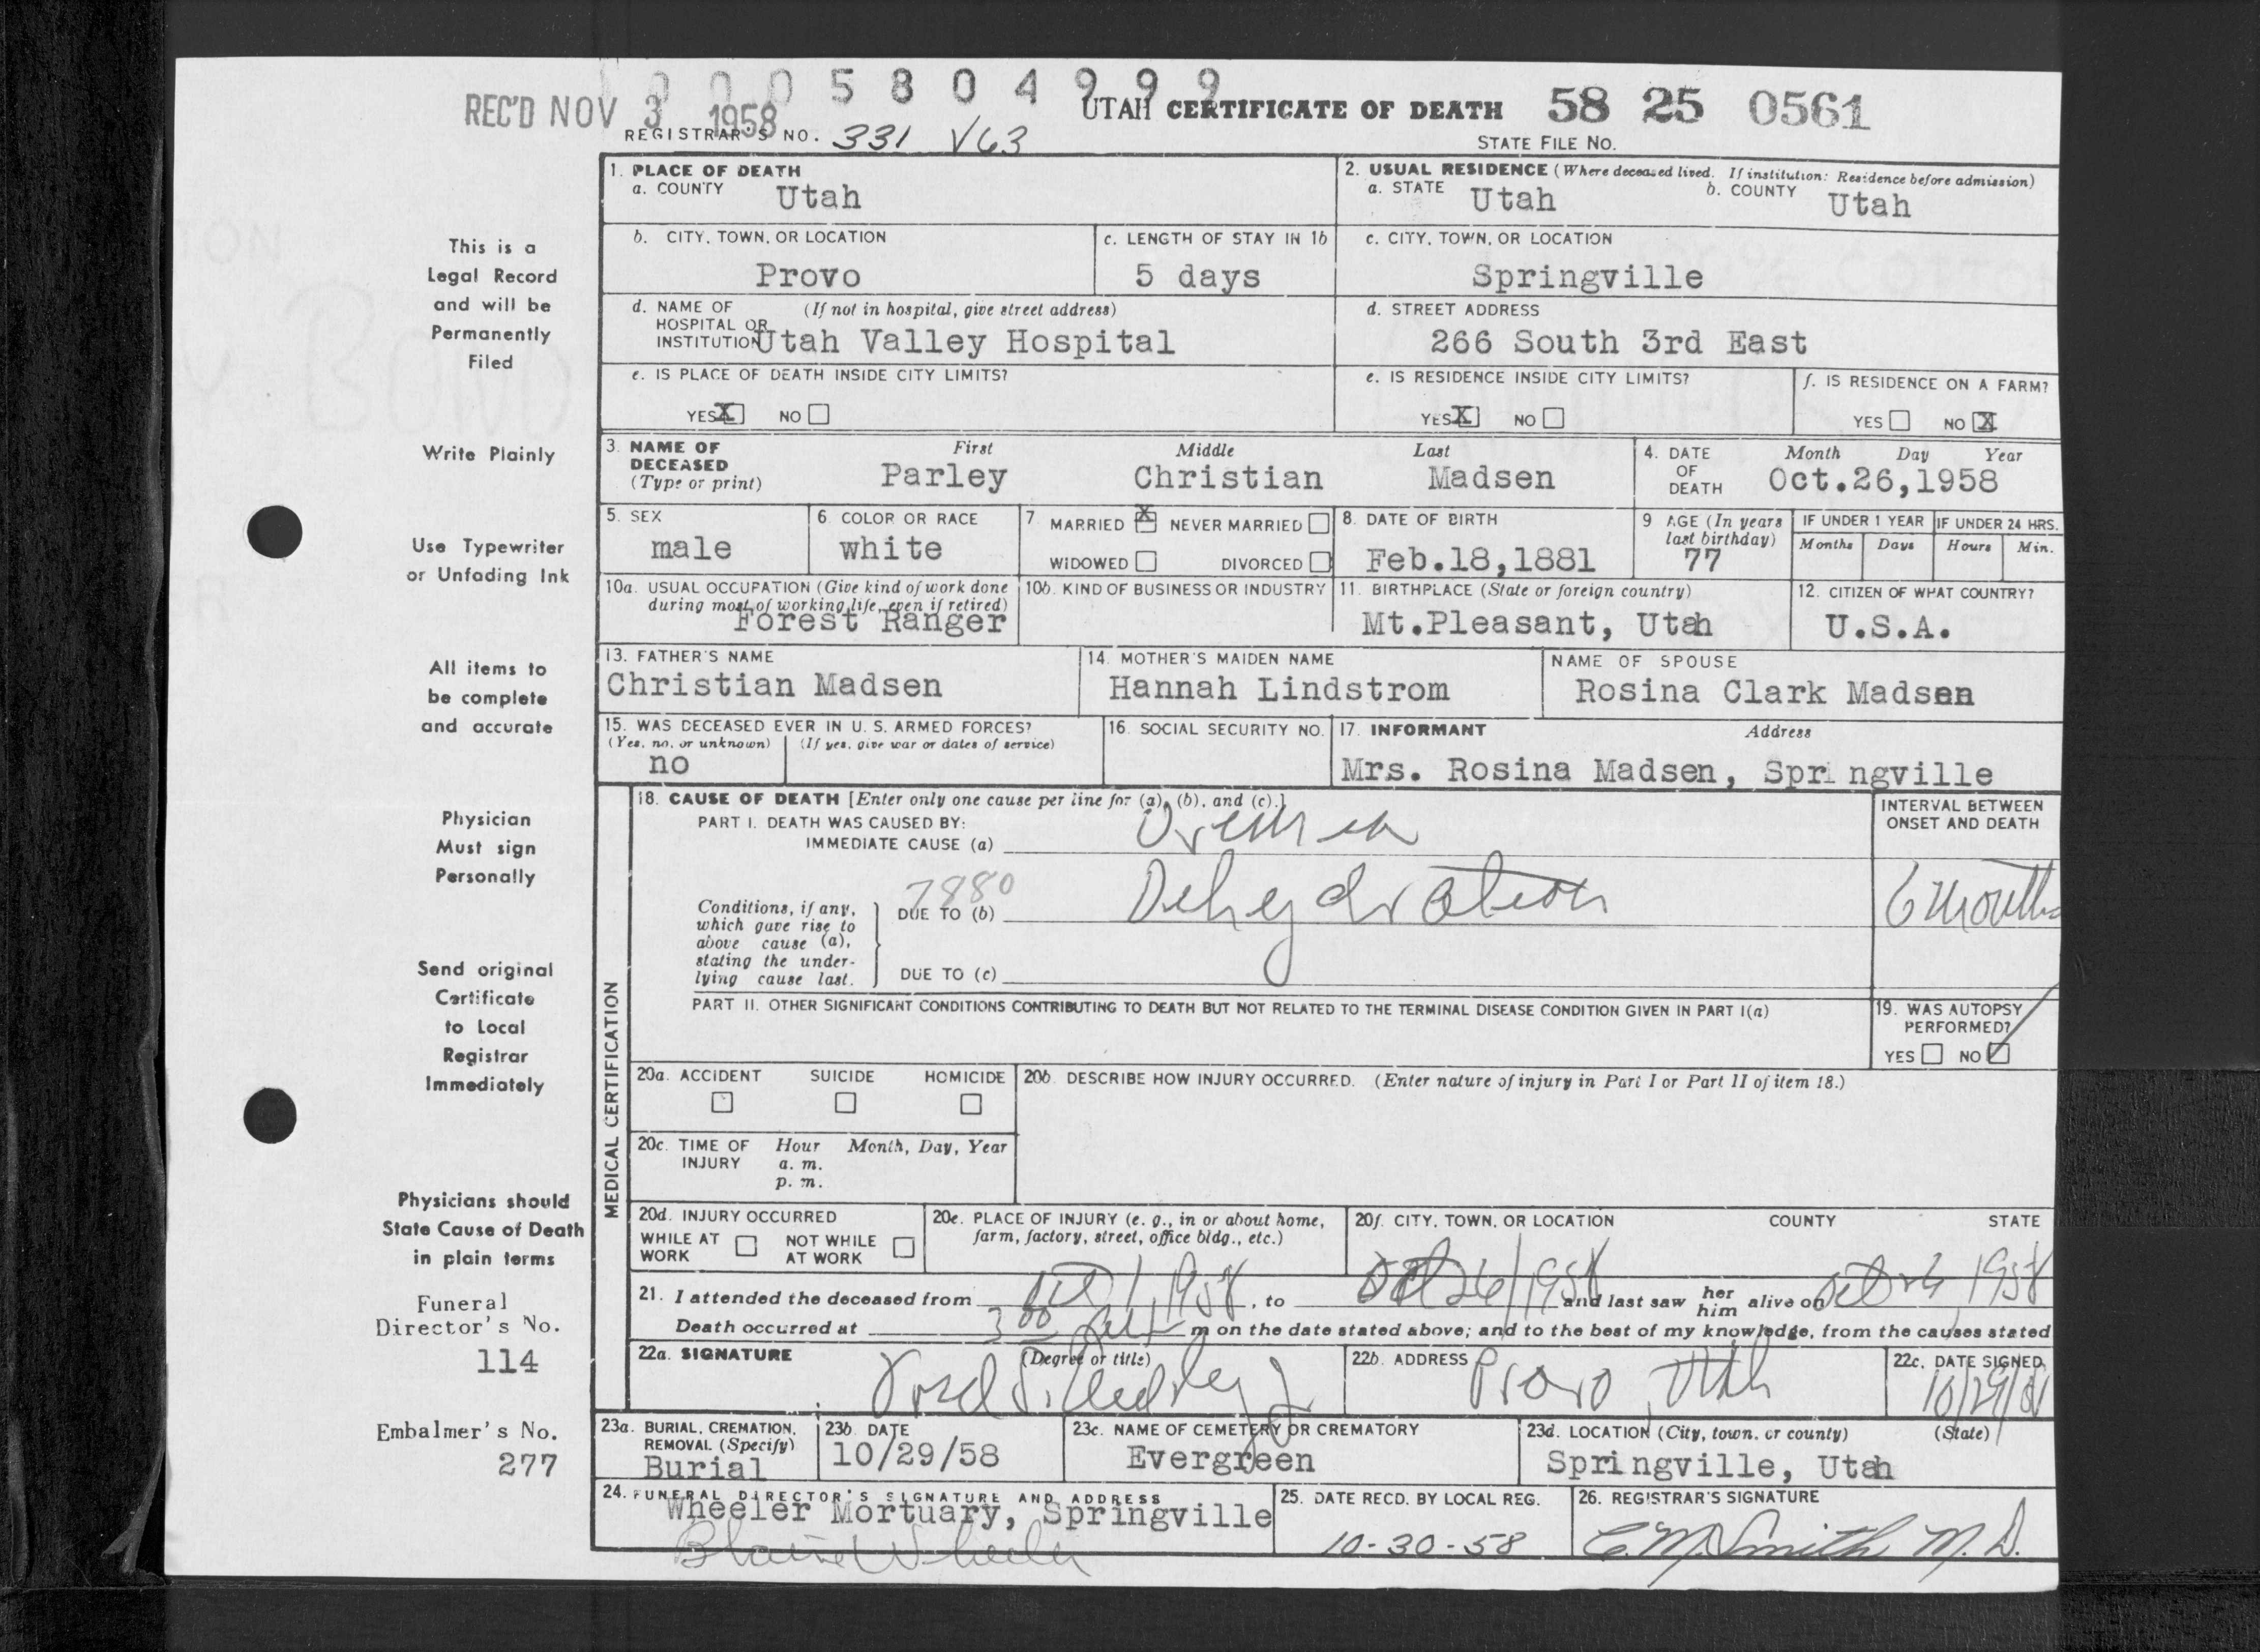 0005804999
REC'D NOV 3 1958
UTAH CERTIFICATE OF DEATH 58 25 0561
REGISTRAR'S NO. 331 V63
STATE FILE NO.
This is a
Legal Record
and will be
Permanently
Filed
Write Plainly
Use Typewriter
or Unfading Ink
All items to
be complete
and accurate
Physician
Must sign
Personally
Send original
Certificate
to Local
Registrar
Immediately
Physicians should
State Cause of Death
in plain terms
Funeral
Director's No.
114
Embalmer's No.
277
1. PLACE OF DEATH
a. COUNTY Utah
2. USUAL RESIDENCE (Where deceased lived. If institution: Residence before admission)
a. STATE Utah b. COUNTY Utah
b. CITY, TOWN, OR LOCATION
Provo
c. LENGTH OF STAY IN 1b
5 days
c. CITY, TOWN, OR LOCATION
Springville
d. NAME OF (If not in hospital, give street address)
HOSPITAL OR
INSTITUTION Utah Valley Hospital
d. STREET ADDRESS
266 South 3rd East
e. IS PLACE OF DEATH INSIDE CITY LIMITS?
YES X NO
e. IS RESIDENCE INSIDE CITY LIMITS?
YES X NO
f. IS RESIDENCE ON A FARM?
YES NO X
3. NAME OF First Middle Last
DECEASED
(Type or print) Parley Christian Madsen
4. DATE Month Day Year
OF
DEATH Oct.26,1958
5. SEX
male
6. COLOR OR RACE
white
7 MARRIED X NEVER MARRIED
WIDOWED DIVORCED
8. DATE OF BIRTH
Feb.18,1881
9 AGE (In years
last birthday)
77
IF UNDER 1 YEAR IF UNDER 24 HRS.
Months Days Hours Min.
10a. USUAL OCCUPATION (Give kind of work done
during most of working life, even if retired)
Forest Ranger
10b. KIND OF BUSINESS OR INDUSTRY
11. BIRTHPLACE (State or foreign country)
Mt.Pleasant, Utah
12. CITIZEN OF WHAT COUNTRY?
U.S.A.
13. FATHER'S NAME
Christian Madsen
14. MOTHER'S MAIDEN NAME
Hannah Lindstrom
NAME OF SPOUSE
Rosina Clark Madsen
15. WAS DECEASED EVER IN U. S. ARMED FORCES?
(Yes, no, or unknown) (If yes, give war or dates of service)
no
16. SOCIAL SECURITY NO.
17. INFORMANT Address
Mrs. Rosina Madsen, Springville
MEDICAL CERTIFICATION
18. CAUSE OF DEATH [Enter only one cause per line for (a), (b), and (c).]
PART I. DEATH WAS CAUSED BY:
IMMEDIATE CAUSE (a) Uremia
INTERVAL BETWEEN
ONSET AND DEATH
7880
Conditions, if any,
which gave rise to
above cause (a),
stating the under-
lying cause last.
DUE TO (b) Dehydration
6 months
DUE TO (c)
PART II. OTHER SIGNIFICANT CONDITIONS CONTRIBUTING TO DEATH BUT NOT RELATED TO THE TERMINAL DISEASE CONDITION GIVEN IN PART I(a)
19. WAS AUTOPSY
PERFORMED?
YES NO
20a. ACCIDENT SUICIDE HOMICIDE
20b. DESCRIBE HOW INJURY OCCURRED. (Enter nature of injury in Part I or Part II of item 18.)
20c. TIME OF Hour Month, Day, Year
INJURY a. m.
p. m.
20d. INJURY OCCURRED
WHILE AT NOT WHILE
WORK AT WORK
20e. PLACE OF INJURY (e. g., in or about home,
farm, factory, street, office bldg., etc.)
20f. CITY, TOWN, OR LOCATION COUNTY STATE
21. I attended the deceased from Oct 1, 1958, to Oct 26/1958 and last saw her him alive on Oct 26, 1958
Death occurred at 3 00 m on the date stated above; and to the best of my knowledge, from the causes stated
22a. SIGNATURE (Degree or title)
22b. ADDRESS Provo, Utah
22c. DATE SIGNED
10/29/58
23a. BURIAL, CREMATION,
REMOVAL (Specify)
Burial
23b DATE
10/29/58
23c. NAME OF CEMETERY OR CREMATORY
Evergreen
23d. LOCATION (City, town, or county) (State)
Springville, Utah
24. FUNERAL DIRECTOR'S SIGNATURE AND ADDRESS
Wheeler Mortuary, Springville
Blaine Wheeler
25. DATE RECD. BY LOCAL REG.
10-30-58
26. REGISTRAR'S SIGNATURE
C. M. Smith M. D.